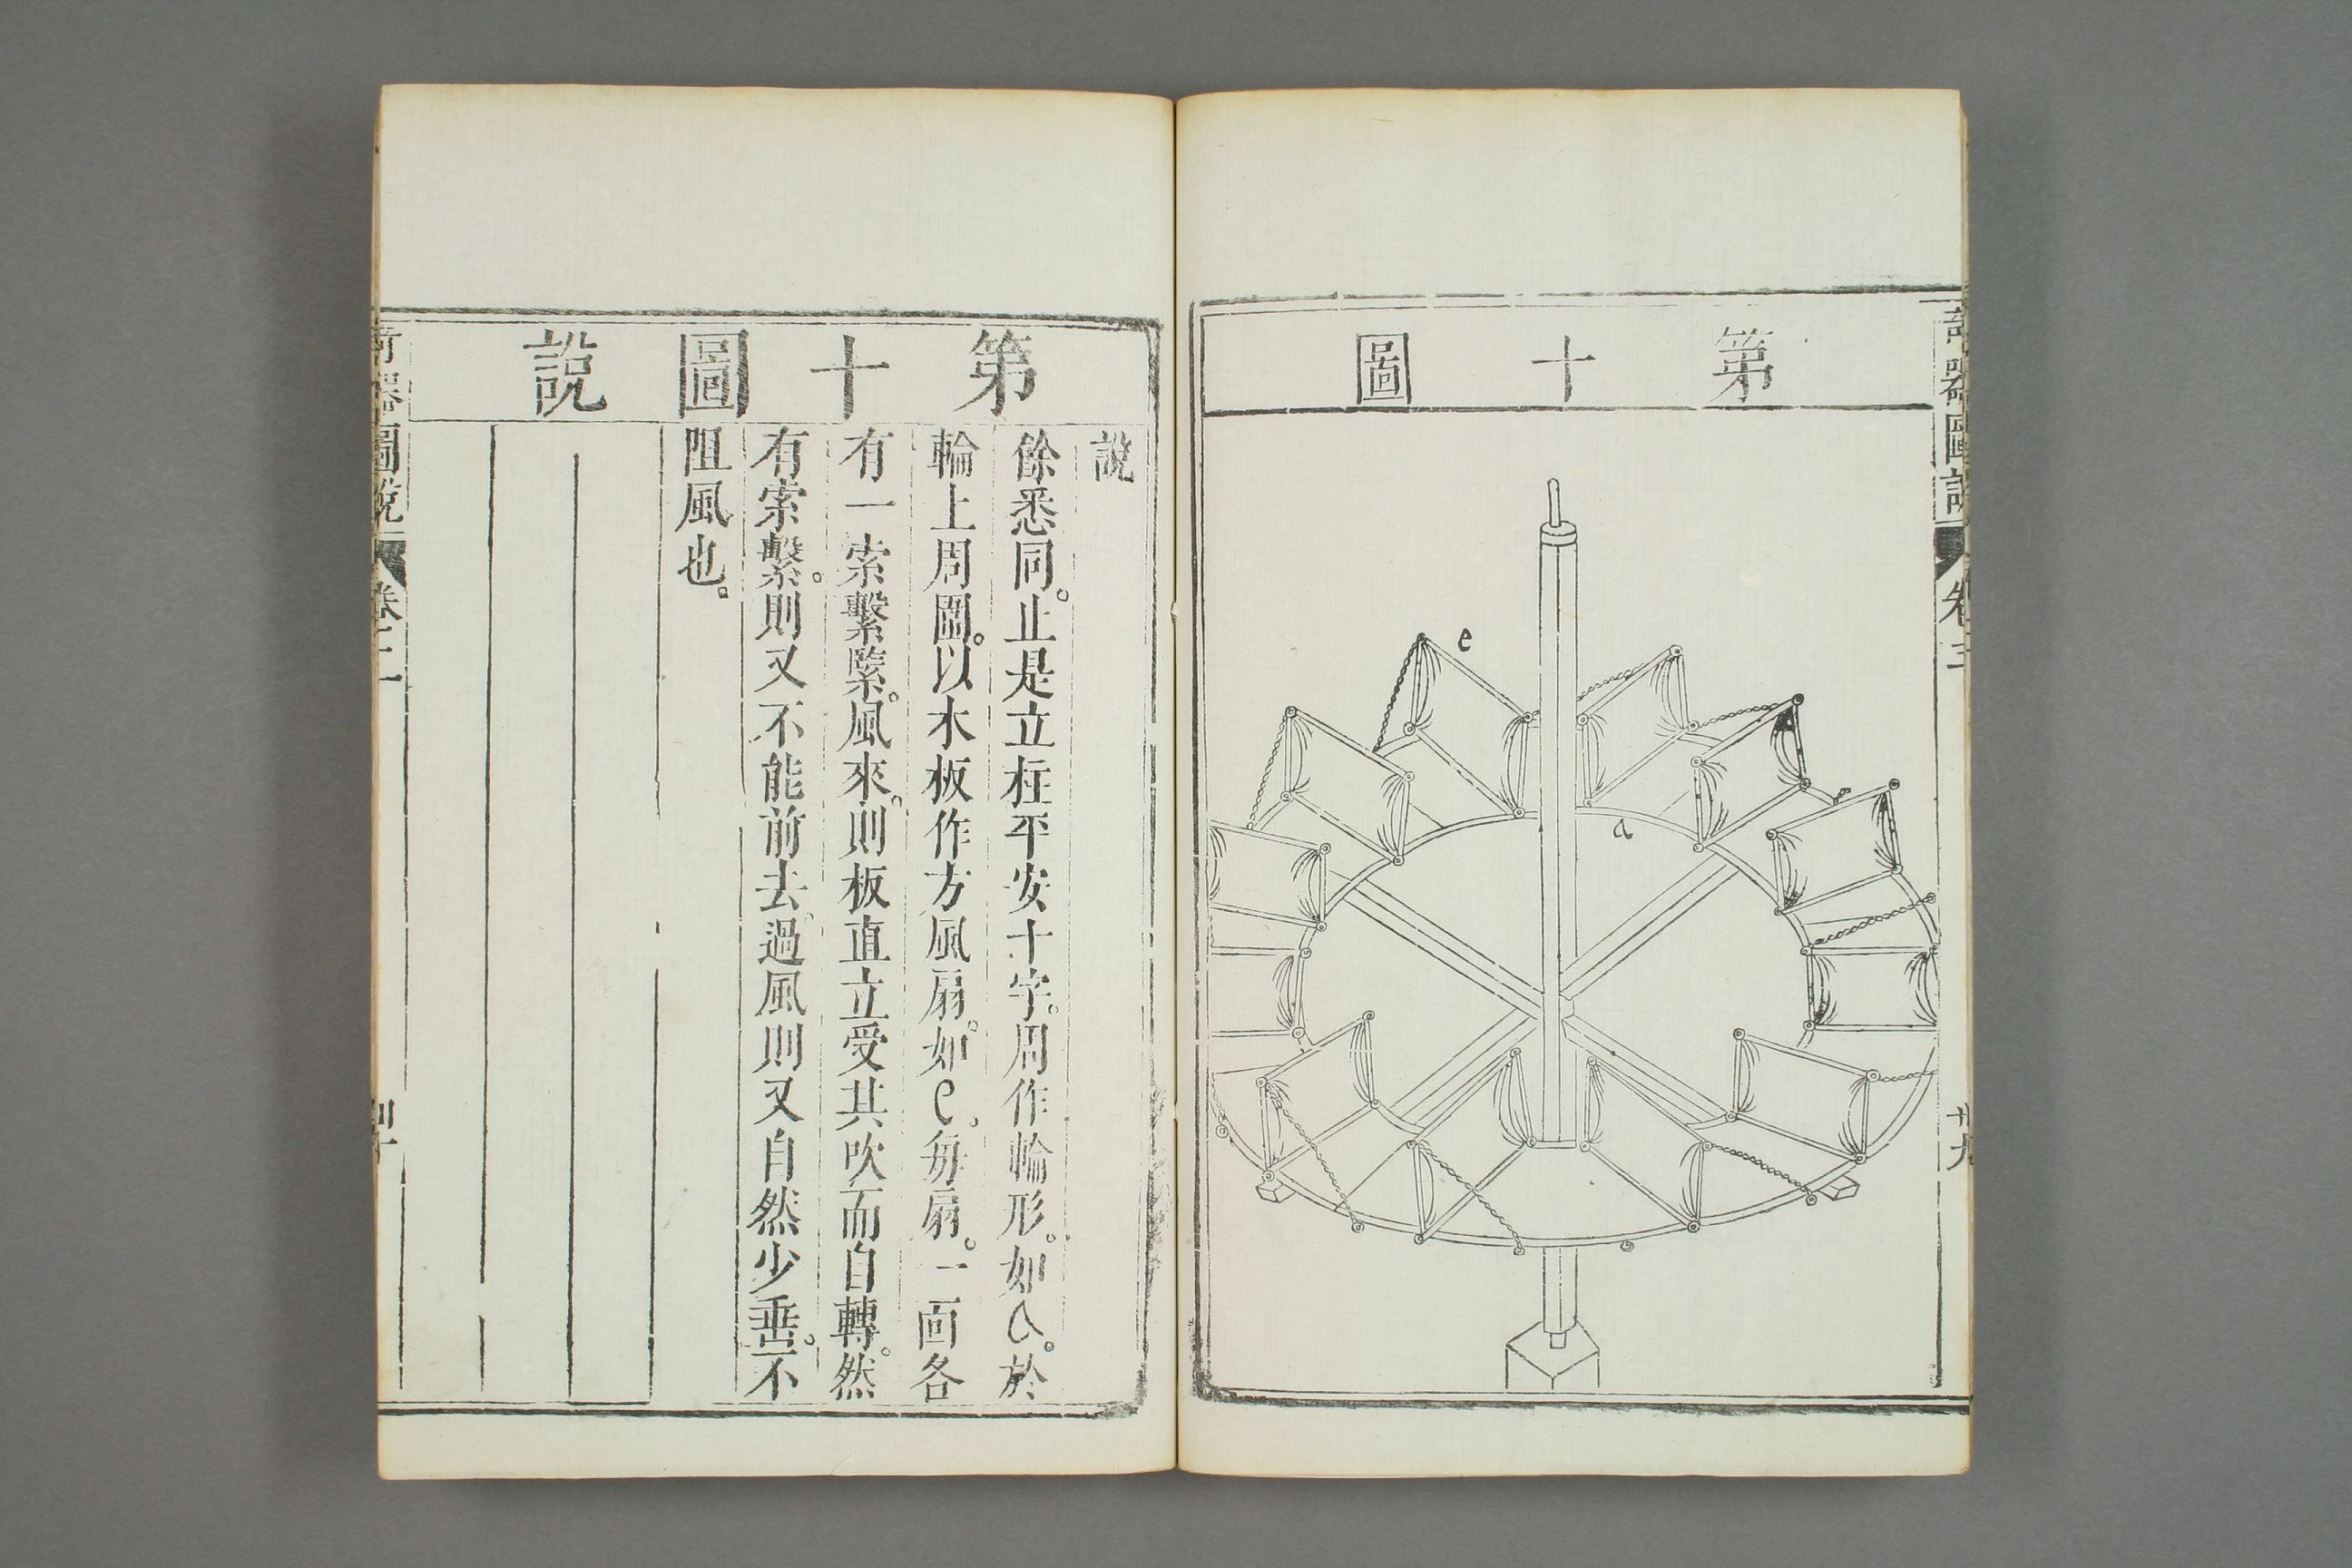 第十圖
e
a
奇器圖說
卷三
卅九
第十圖說
說
餘悉同。止是立柱平安十字。周作輪形。如a。於
輪上周圍。以木板作方風扇。如e。每扇。一面各
有一索繫緊。風來。則板直立受其吹而自轉。然
有索繫。則又不能前去。過風則又自然少垂。不
阻風也。
奇器圖說
卷三